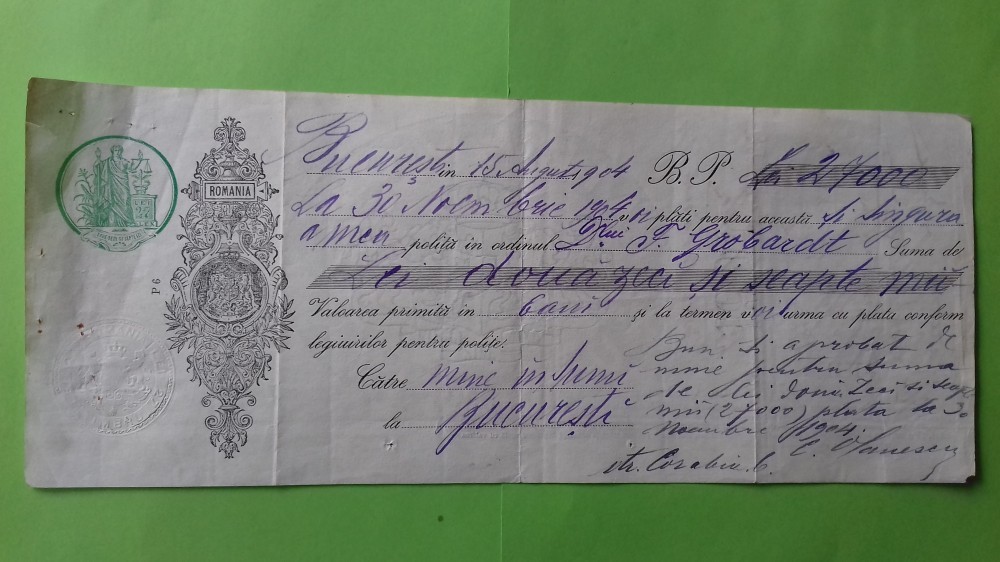 ROMANIA
LEI 27
P 6
București în 15 August 1904 B. P. Lei 27000
La 30 Noembrie 1904 voi plăti pentru această și singura
a mea poliță în ordinul Dlui F. Grobardt Suma de
Lei două zeci și seapte mii
Valoarea primită în bani și la termen voi urma cu plata conform
legiuirilor pentru polițe.
Către mine însumi
la București
Bun și aprobat de
mine pentru suma
de lei două zeci si seapte
mii (27000) plata la 30
Noembre 1904.
str. Corabia 6.